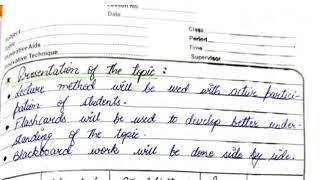 Date
Subject
Class
Period
Time
Illustrative Aids
Innovative Technique
Supervisor
* Presentation of the topic :
• Lecture method will be used with active partici-
pation of students.
• Flashcards will be used to develop better under-
standing of the topic.
• Blackboard work will be done side by side.